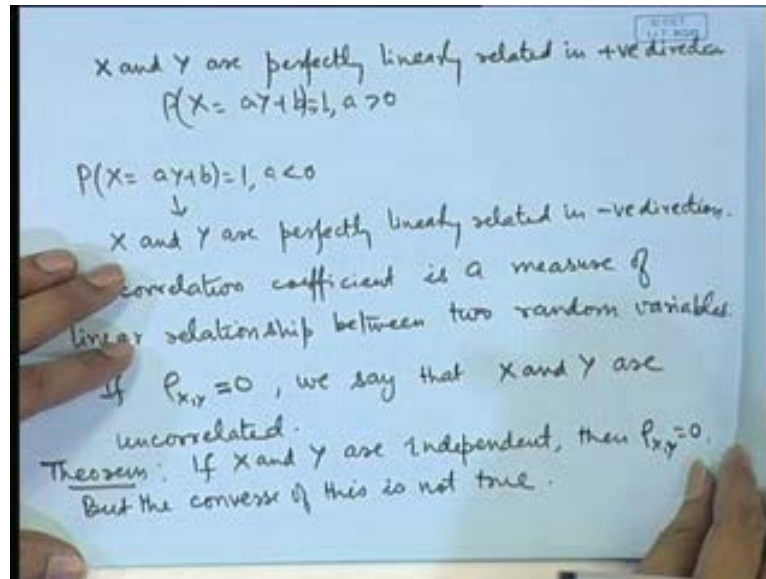 X and Y are perfectly linearly related in +ve direction
P(X = aY+b)=1, a>0
P(X= aY+b)=1, a<0
↓
X and Y are perfectly linearly related in -ve direction.
correlation coefficient is a measure of
linear relationship between two random variables.
If ρx,y =0, we say that X and Y are
uncorrelated.
Theorem: If X and Y are independent, then ρx,y=0.
But the converse of this is not true.